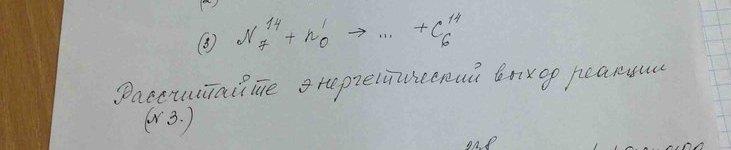 (3) N₇¹⁴ + n₀¹ → ... + C₆¹⁴
Рассчитайте энергетический выход реакции
(N 3.)